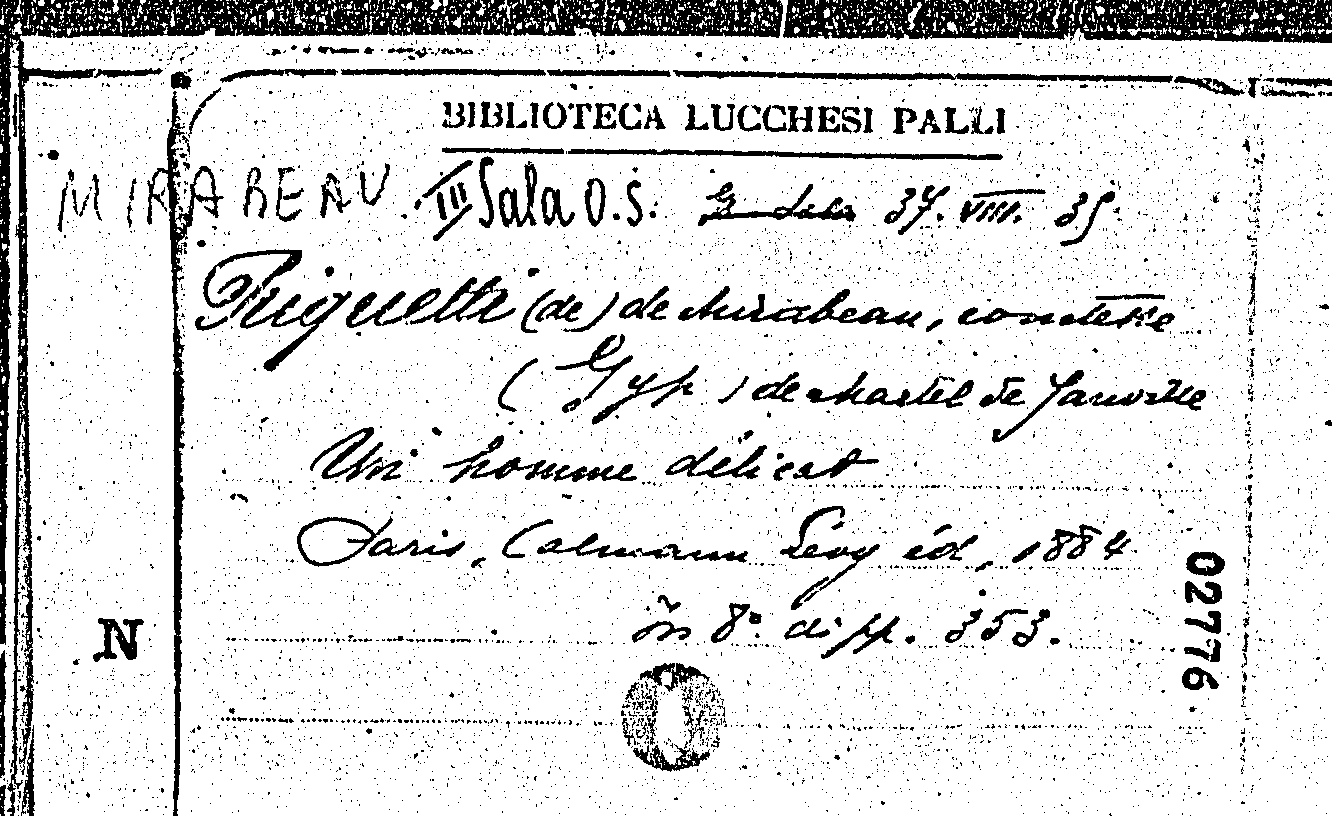 BIBLIOTECA LUCCHESI PALLI
MIRABEAU III Sala O.S. 37. VIII. 35
Riguetti (de) de Mirabeau, comtesse
(Gyp) de Martel de Janville
Un homme délicat
Paris, Calmann Lévy éd, 1884
in 8° di pp. 353.
N
02776